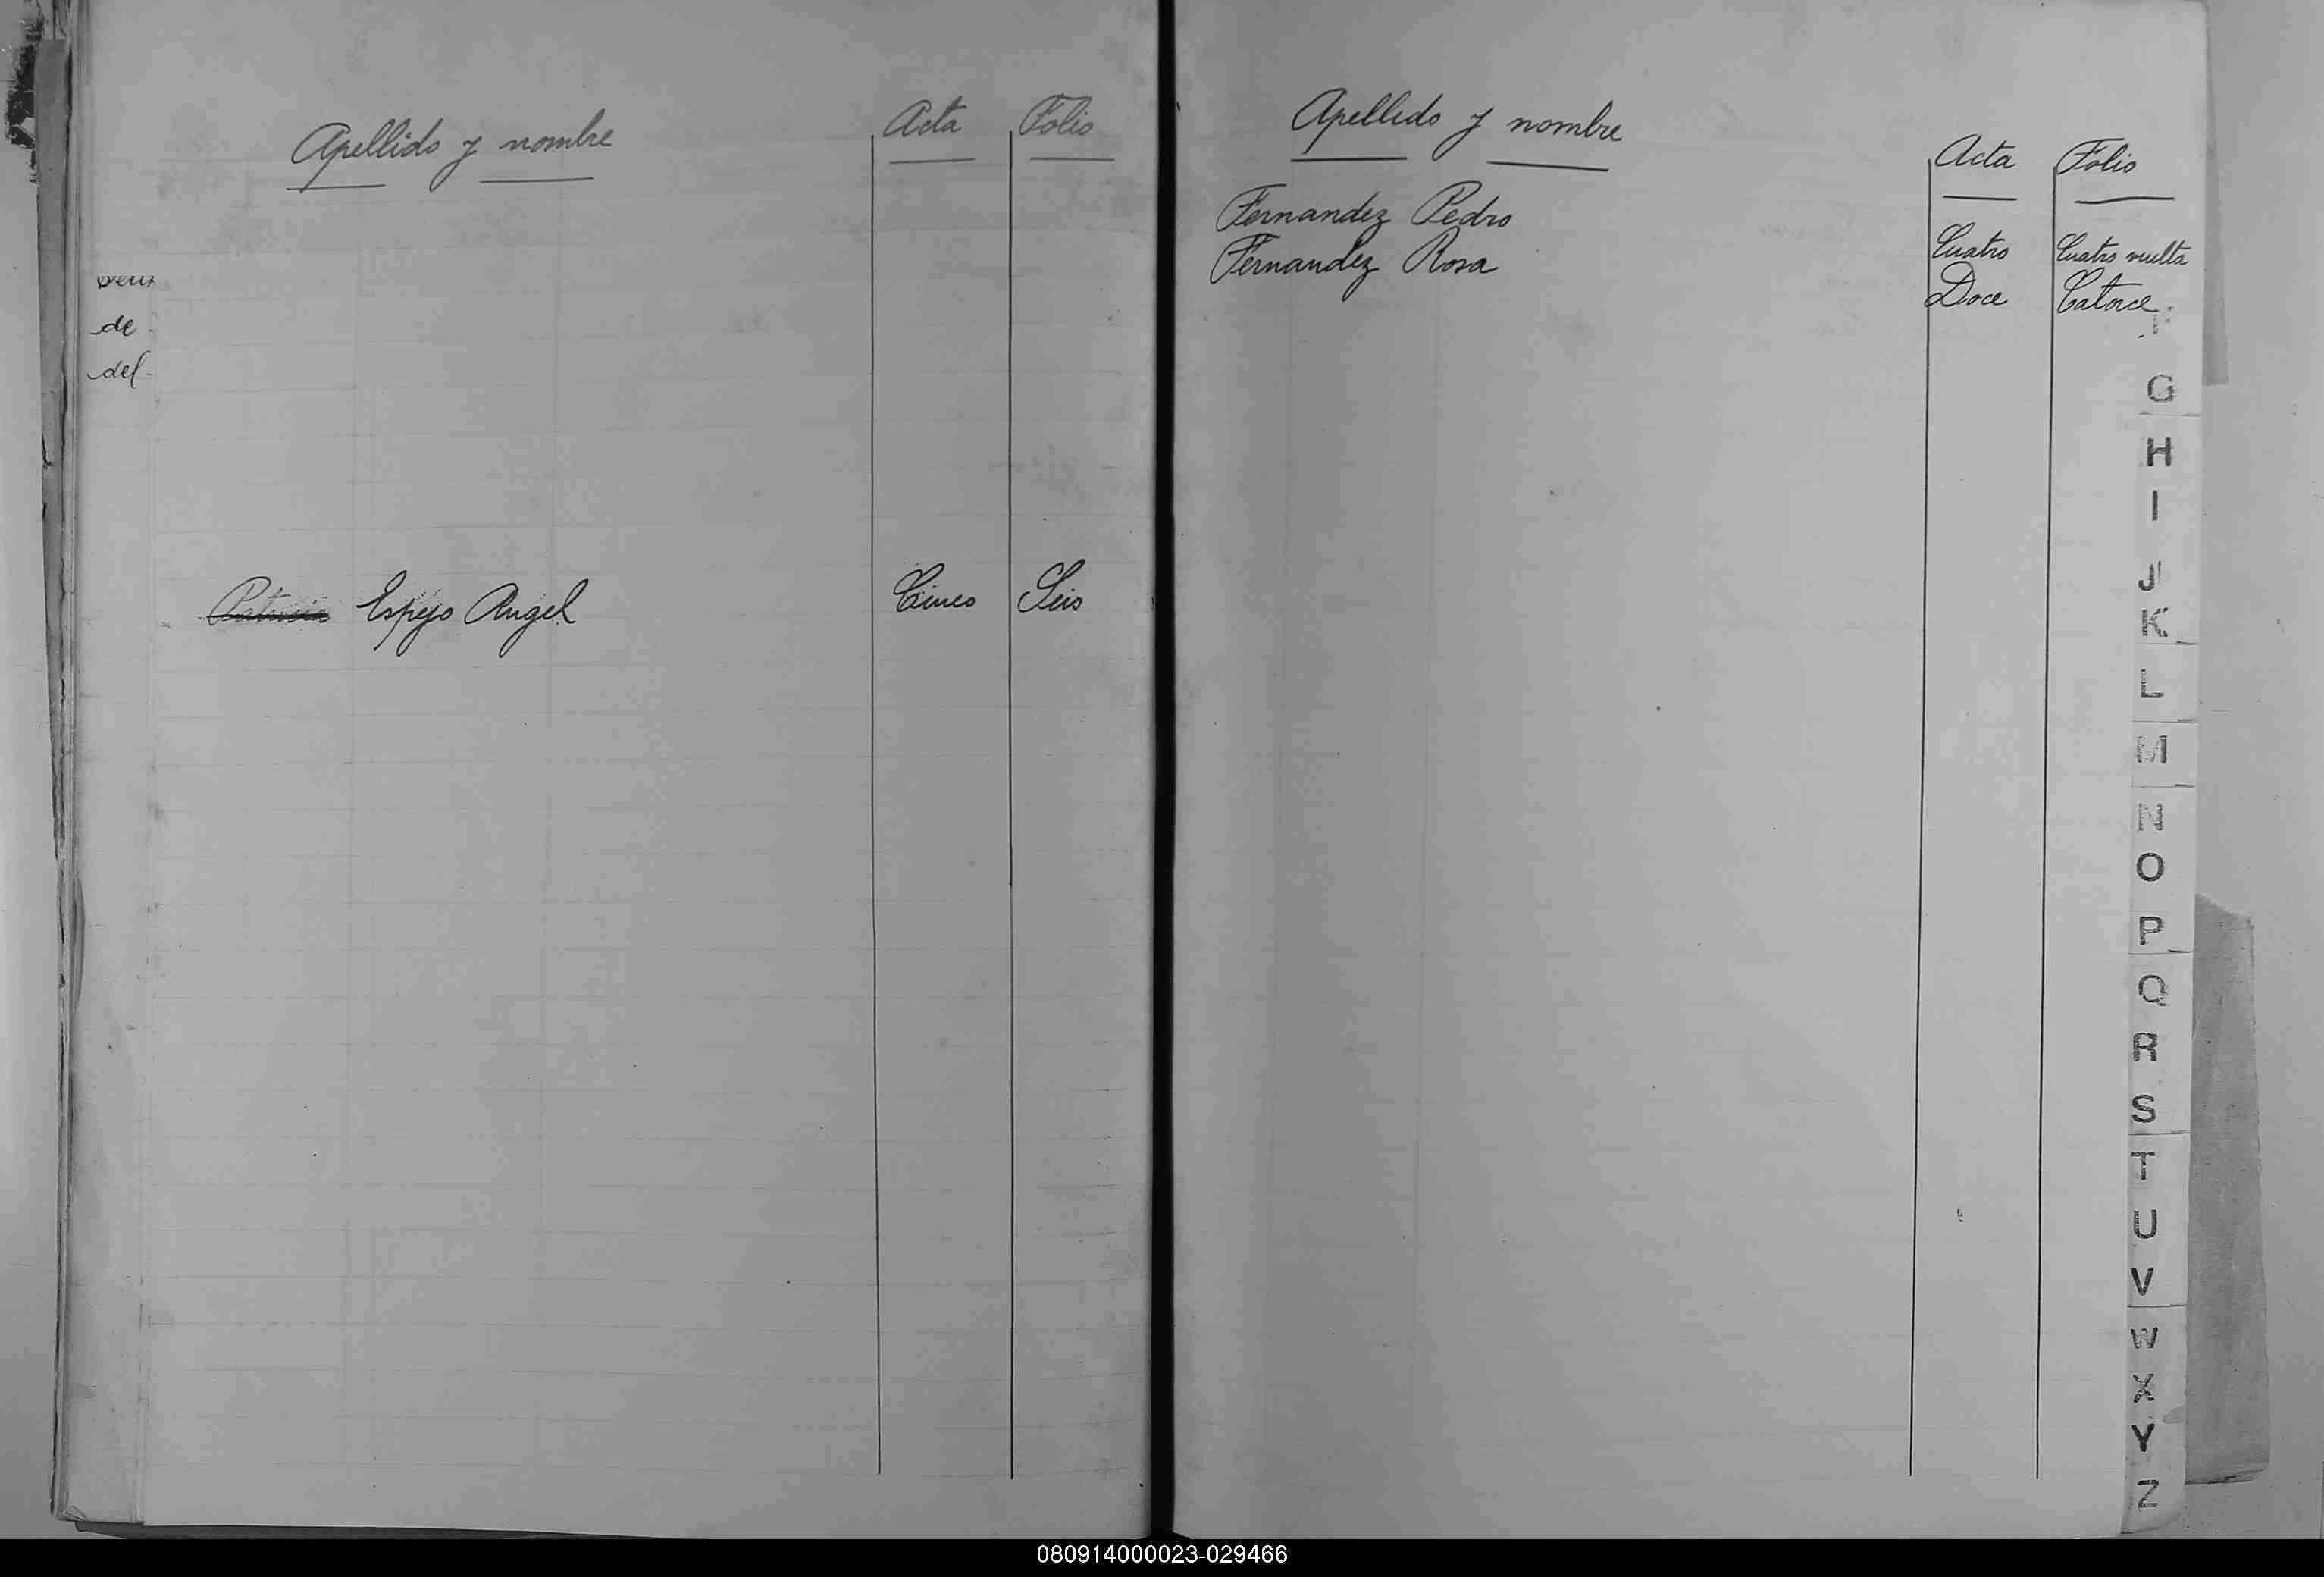 Apellido y nombre Acta Folio
de
del
Patricia Espejo Angel Cinco Seis
Apellido y nombre Acta Folio
Fernandez Pedro Cuatro Cuatro vuelta
Fernandez Rosa Doce Catorce
F
G
H
I
J
K
L
M
N
O
P
Q
R
S
T
U
V
W
X
Y
Z
080914000023-029466